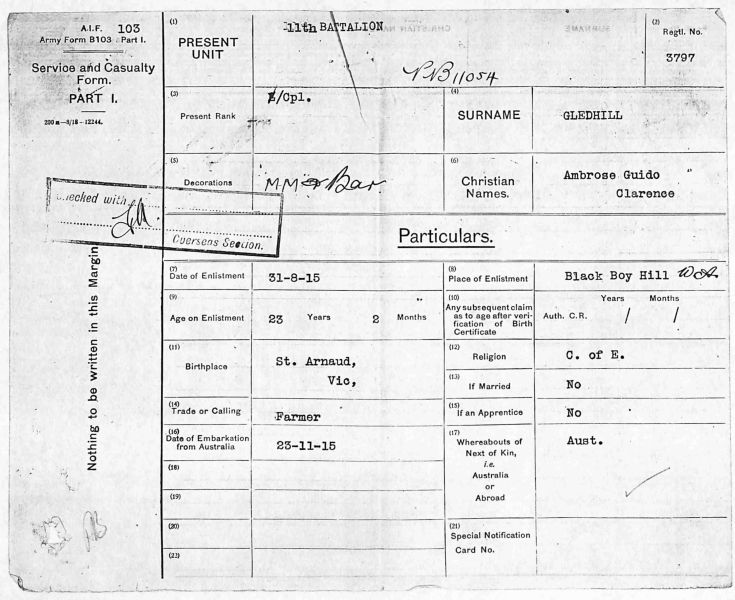 A.I.F. 103
Army Form B103 Part I.
Service and Casualty
Form.
PART I.
200 m—3/18—12244.
(1)
PRESENT
UNIT
11th BATTALION
(2)
Regtl. No.
3797
(3)
Present Rank
L/Cpl.
(4)
SURNAME
GLEDHILL
(5)
Decorations
MM & Bar.
(6)
Christian
Names.
Ambrose Guido
Clarence
checked with
Overseas Section.
Particulars.
(7)
Date of Enlistment
31-8-15
(8)
Place of Enlistment
Black Boy Hill W.A.
(9)
Age on Enlistment
23 Years 2 Months
(10)
Any subsequent claim
as to age after veri-
fication of Birth
Certificate
Years Months
Auth. C.R. / /
(11)
Birthplace
St. Arnaud,
Vic,
(12)
Religion
C. of E.
(13)
If Married
No
(14)
Trade or Calling
Farmer
(15)
If an Apprentice
No
(16)
Date of Embarkation
from Australia
23-11-15
(17)
Whereabouts of
Next of Kin,
i.e.
Australia
or
Abroad
Aust.
(18)
(19)
(20)
(21)
Special Notification
Card No.
(22)
Nothing to be written in this Margin